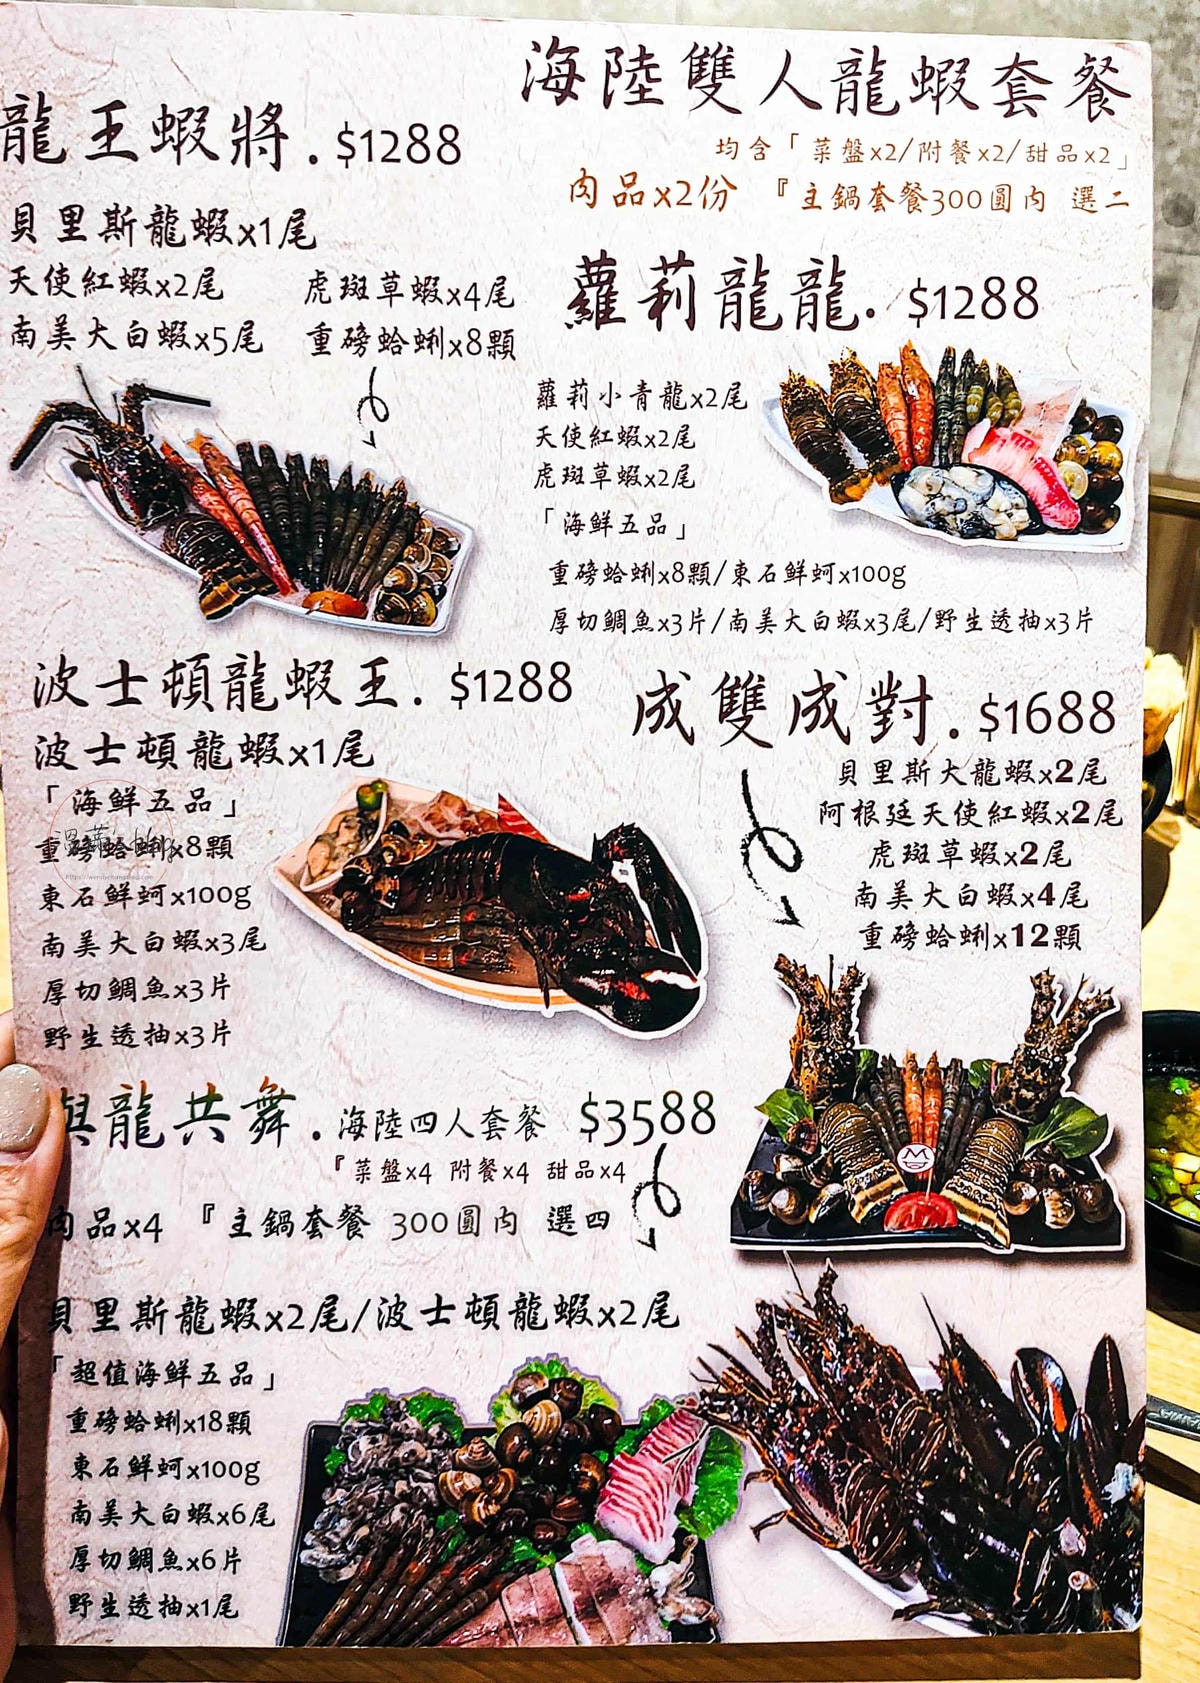 海陸雙人龍蝦套餐
均含「菜盤x2/附餐x2/甜品x2」
肉品x2份 『主鍋套餐300圓內 選二
龍王蝦將.$1288
貝里斯龍蝦x1尾
天使紅蝦x2尾 虎斑草蝦x4尾
南美大白蝦x5尾 重磅蛤蜊x8顆
蘿莉龍龍.$1288
蘿莉小青龍x2尾
天使紅蝦x2尾
虎斑草蝦x2尾
「海鮮五品」
重磅蛤蜊x8顆/東石鮮蚵x100g
厚切鯛魚x3片/南美大白蝦x3尾/野生透抽x3片
波士頓龍蝦王.$1288
波士頓龍蝦x1尾
「海鮮五品」
重磅蛤蜊x8顆
東石鮮蚵x100g
南美大白蝦x3尾
厚切鯛魚x3片
野生透抽x3片
成雙成對.$1688
貝里斯大龍蝦x2尾
阿根廷天使紅蝦x2尾
虎斑草蝦x2尾
南美大白蝦x4尾
重磅蛤蜊x12顆
與龍共舞.海陸四人套餐 $3588
『菜盤x4 附餐x4 甜品x4
肉品x4 『主鍋套餐 300圓內 選四
貝里斯龍蝦x2尾/波士頓龍蝦x2尾
「超值海鮮五品」
重磅蛤蜊x18顆
東石鮮蚵x100g
南美大白蝦x6尾
厚切鯛魚x6片
野生透抽x1尾